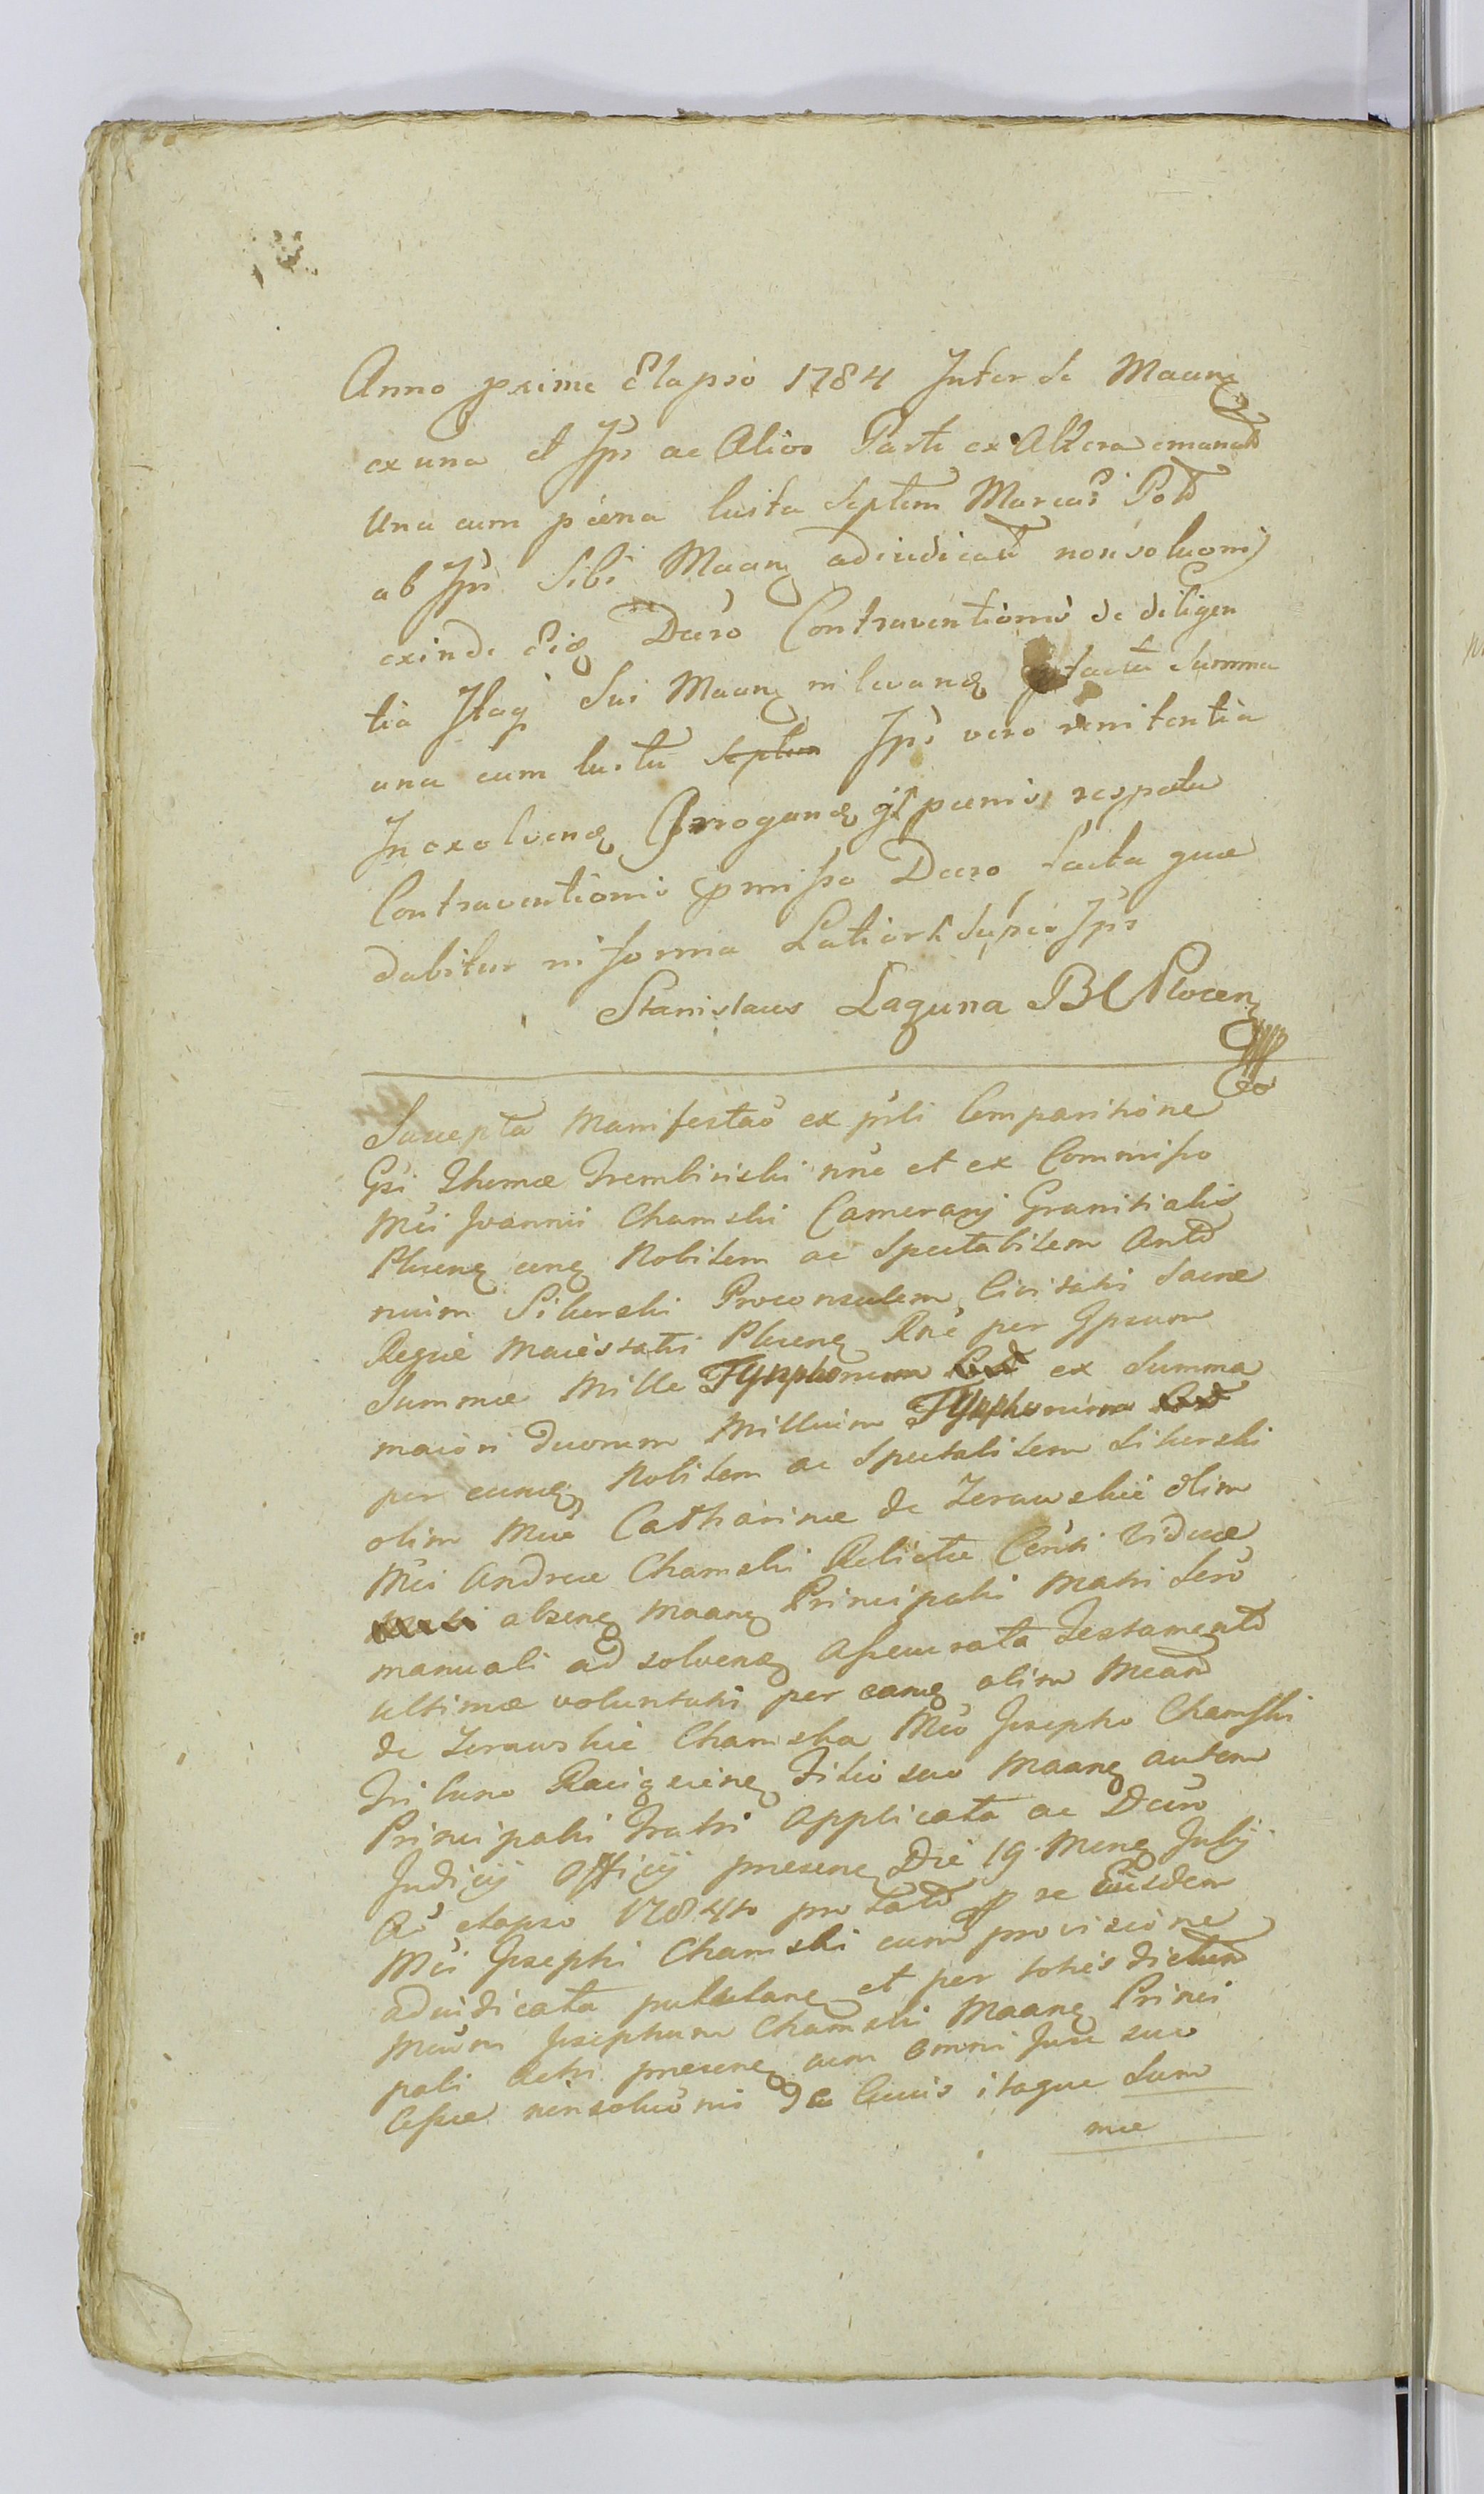 Anno pxime Elapso 1784 Inter se Maanẹ
ex una et Ips ac Alios Parte ex Altera emanatt
Una cum poena lusta Septem Marcar Poltt
ab Ips Sibi Maanẹ adiudicatt non soluom
exinde Eiq Decro Contraventionis de diligen
tia Itaq Sui Maanẹ in levanẹ facta Summa
una cum lustu Septem Ips vero renitentia
In exolvenẹ Arroganẹ poenis respectu
Contraventionis pmisso Decro facta quae
dabitur in forma Latiori super Ips
Stanislaus Laguna BC Plocenẹ
Suscepta Manifestao ex prli Comparitione
Gsi Thomae Trembinski nne et ex Commisso
Mci Joannis Chamski Camerarij Granitialis
Plocenẹ cenẹ Nobilem ac Spectabilem Antt
nium Sikorski Proconsulem Civitatis Sacrae
Regiae Maiestatis Plocenẹ Rne per Ipsum
Summae Mille Tynphonum ex Summa
maiori Duorum Millium Tynphonum
per eumẹ Nobilem ac Spectabilem Sikorski
olim Mcae Catharinae de Zerawskie olim
Mci Andreae Chamski Relictae Consti Viduae
absenẹ Maanẹ Principalis Matri Sero
manuali ad solvenẹ Assecurata Testamentt
ultimae voluntatis per eamẹ olim Mcam
de Zerawskie Chamska Mco Josepho Chamski
Tribuno Raciązenẹ Filio suo Maanẹ autem
Principalis Fratri Applicata ac Decro
Judicij Officij presenẹ Die 19 Menẹ Julij
Ao elapso 1784to pro latt p se Eiusdem
Mci Josephi Chamski cum provisione
adiudicata pullulanẹ et per toties dictum
Mcum Josephum Chamski Maanẹ Princi
pali Actis presenẹ cum omni Jure suo
Cessae non soluo ni de cuius itaque Sum
mae